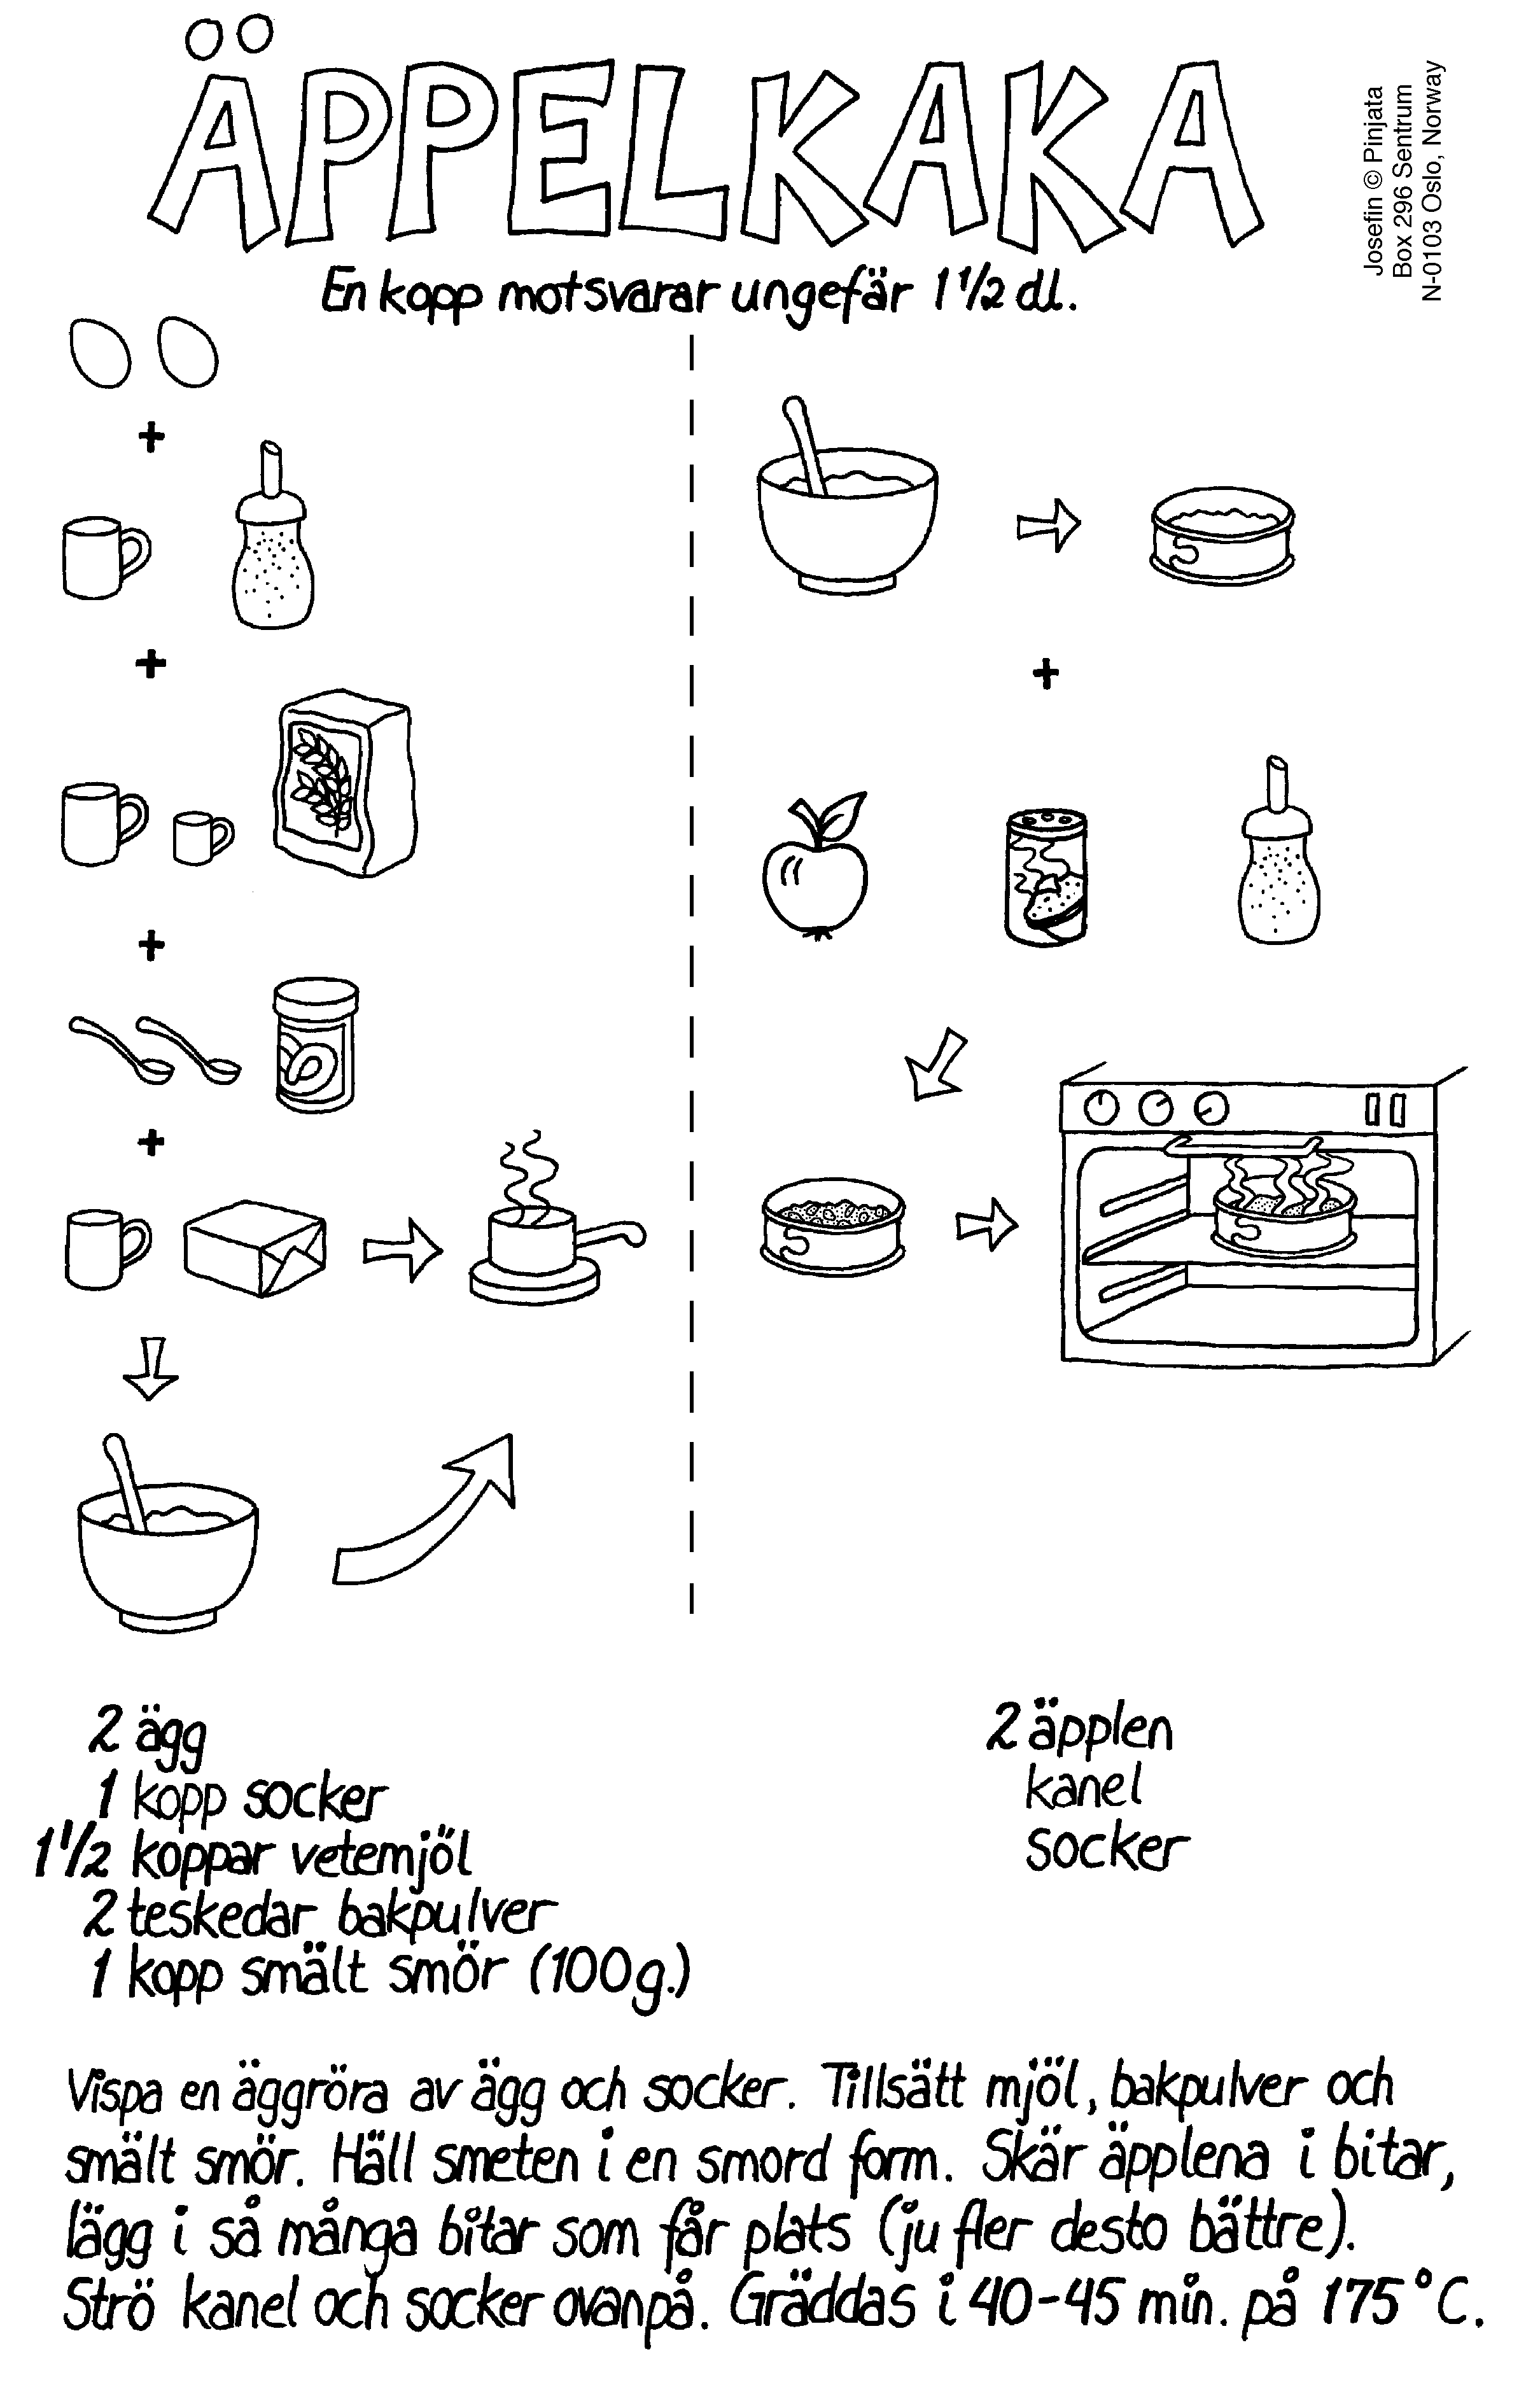 ÄPPELKAKA
Josefin © Pinjata
Box 296 Sentrum
N-0103 Oslo, Norway
En kopp motsvarar ungefär 1 1/2 dl.
+
+
+
+
+
2 ägg
1 kopp socker
1 1/2 koppar vetemjöl
2 teskedar bakpulver
1 kopp smält smör (100g.)
2 äpplen
kanel
socker
Vispa en äggröra av ägg och socker. Tillsätt mjöl, bakpulver och
smält smör. Häll smeten i en smord form. Skär äpplena i bitar,
lägg i så många bitar som får plats (ju fler desto bättre).
Strö kanel och socker ovanpå. Gräddas i 40-45 min. på 175°C.